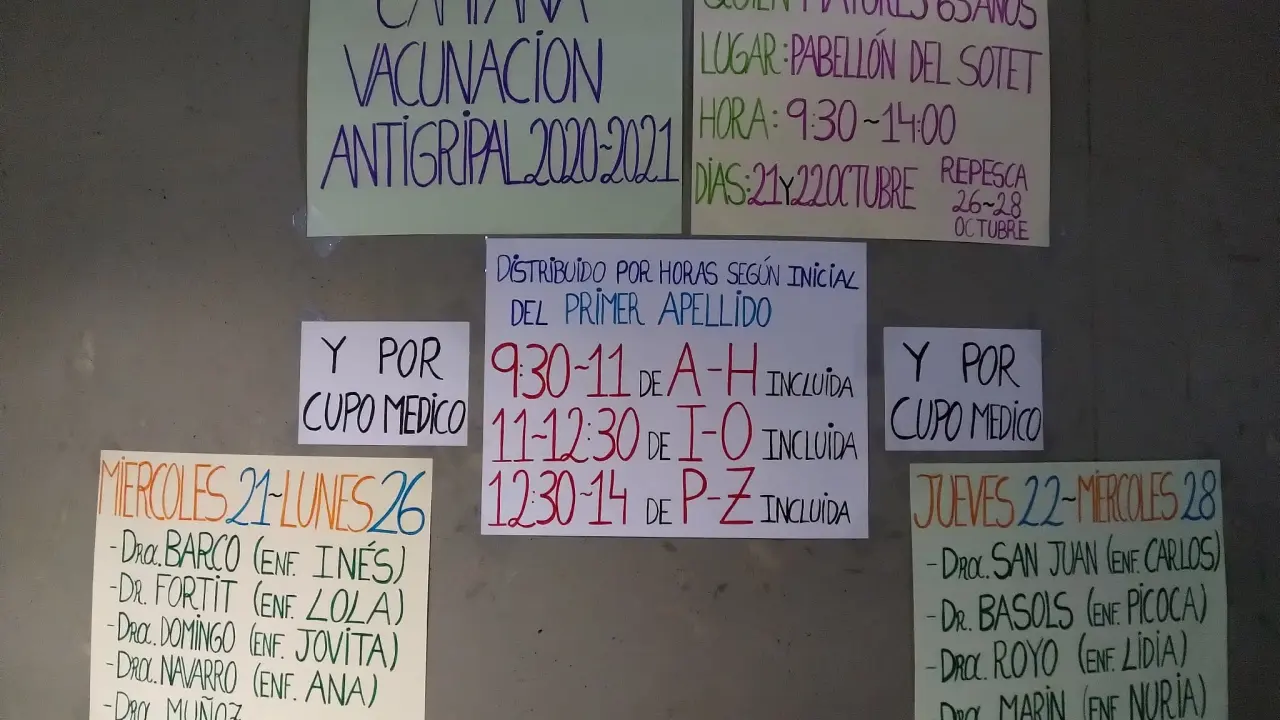 CAMPAÑA
VACUNACIÓN
ANTIGRIPAL 2020~2021
QUIEN: MAYORES 65 AÑOS
LUGAR: PABELLÓN DEL SOTET
HORA: 9:30~14:00
DÍAS: 21 Y 22 OCTUBRE
REPESCA
26~28
OCTUBRE
DISTRIBUIDO POR HORAS SEGÚN INICIAL
DEL PRIMER APELLIDO
9:30-11 DE A-H INCLUIDA
11-12:30 DE I-O INCLUIDA
12:30-14 DE P-Z INCLUIDA
Y POR
CUPO MEDICO
Y POR
CUPO MEDICO
MIERCOLES 21~LUNES 26
-Dra. BARCO (ENF. INÉS)
-DR. FORTIT (ENF. LOLA)
-Dra. DOMINGO (ENF. JOVITA)
-Dra. NAVARRO (ENF. ANA)
-Dra. MUÑOZ
JUEVES 22~MIERCOLES 28
-Dra. SAN JUAN (ENF. CARLOS)
-DR. BASOLS (ENF. PICOCA)
-Dra. ROYO (ENF. LIDIA)
-Dra. MARIN (ENF. NURIA)